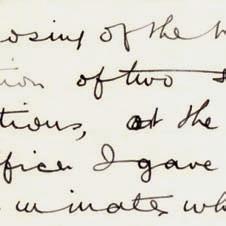 osing of the
tion of two
tions, at the
ffice I gave
minate wh